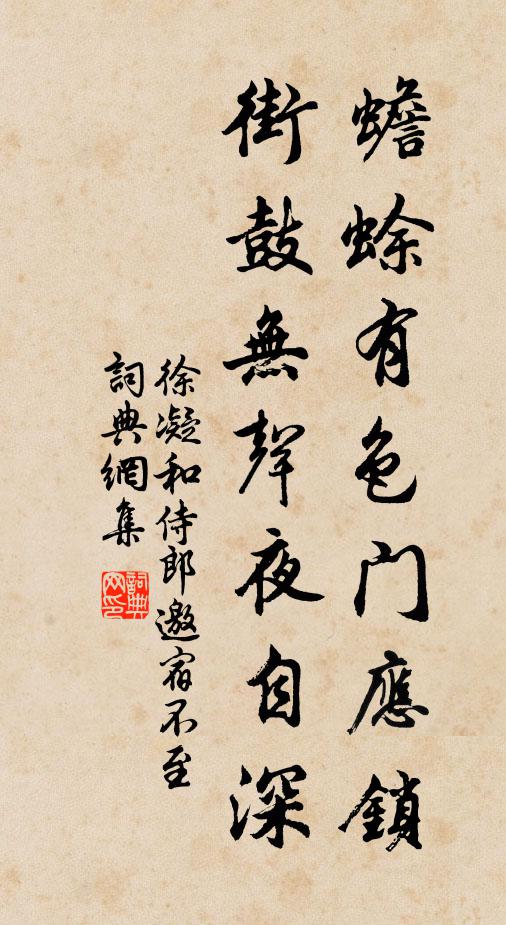 蟾蜍有色門應鎖
街鼓無聲夜自深
徐凝和侍郎邀宿不至
詞典網集
詞典网印